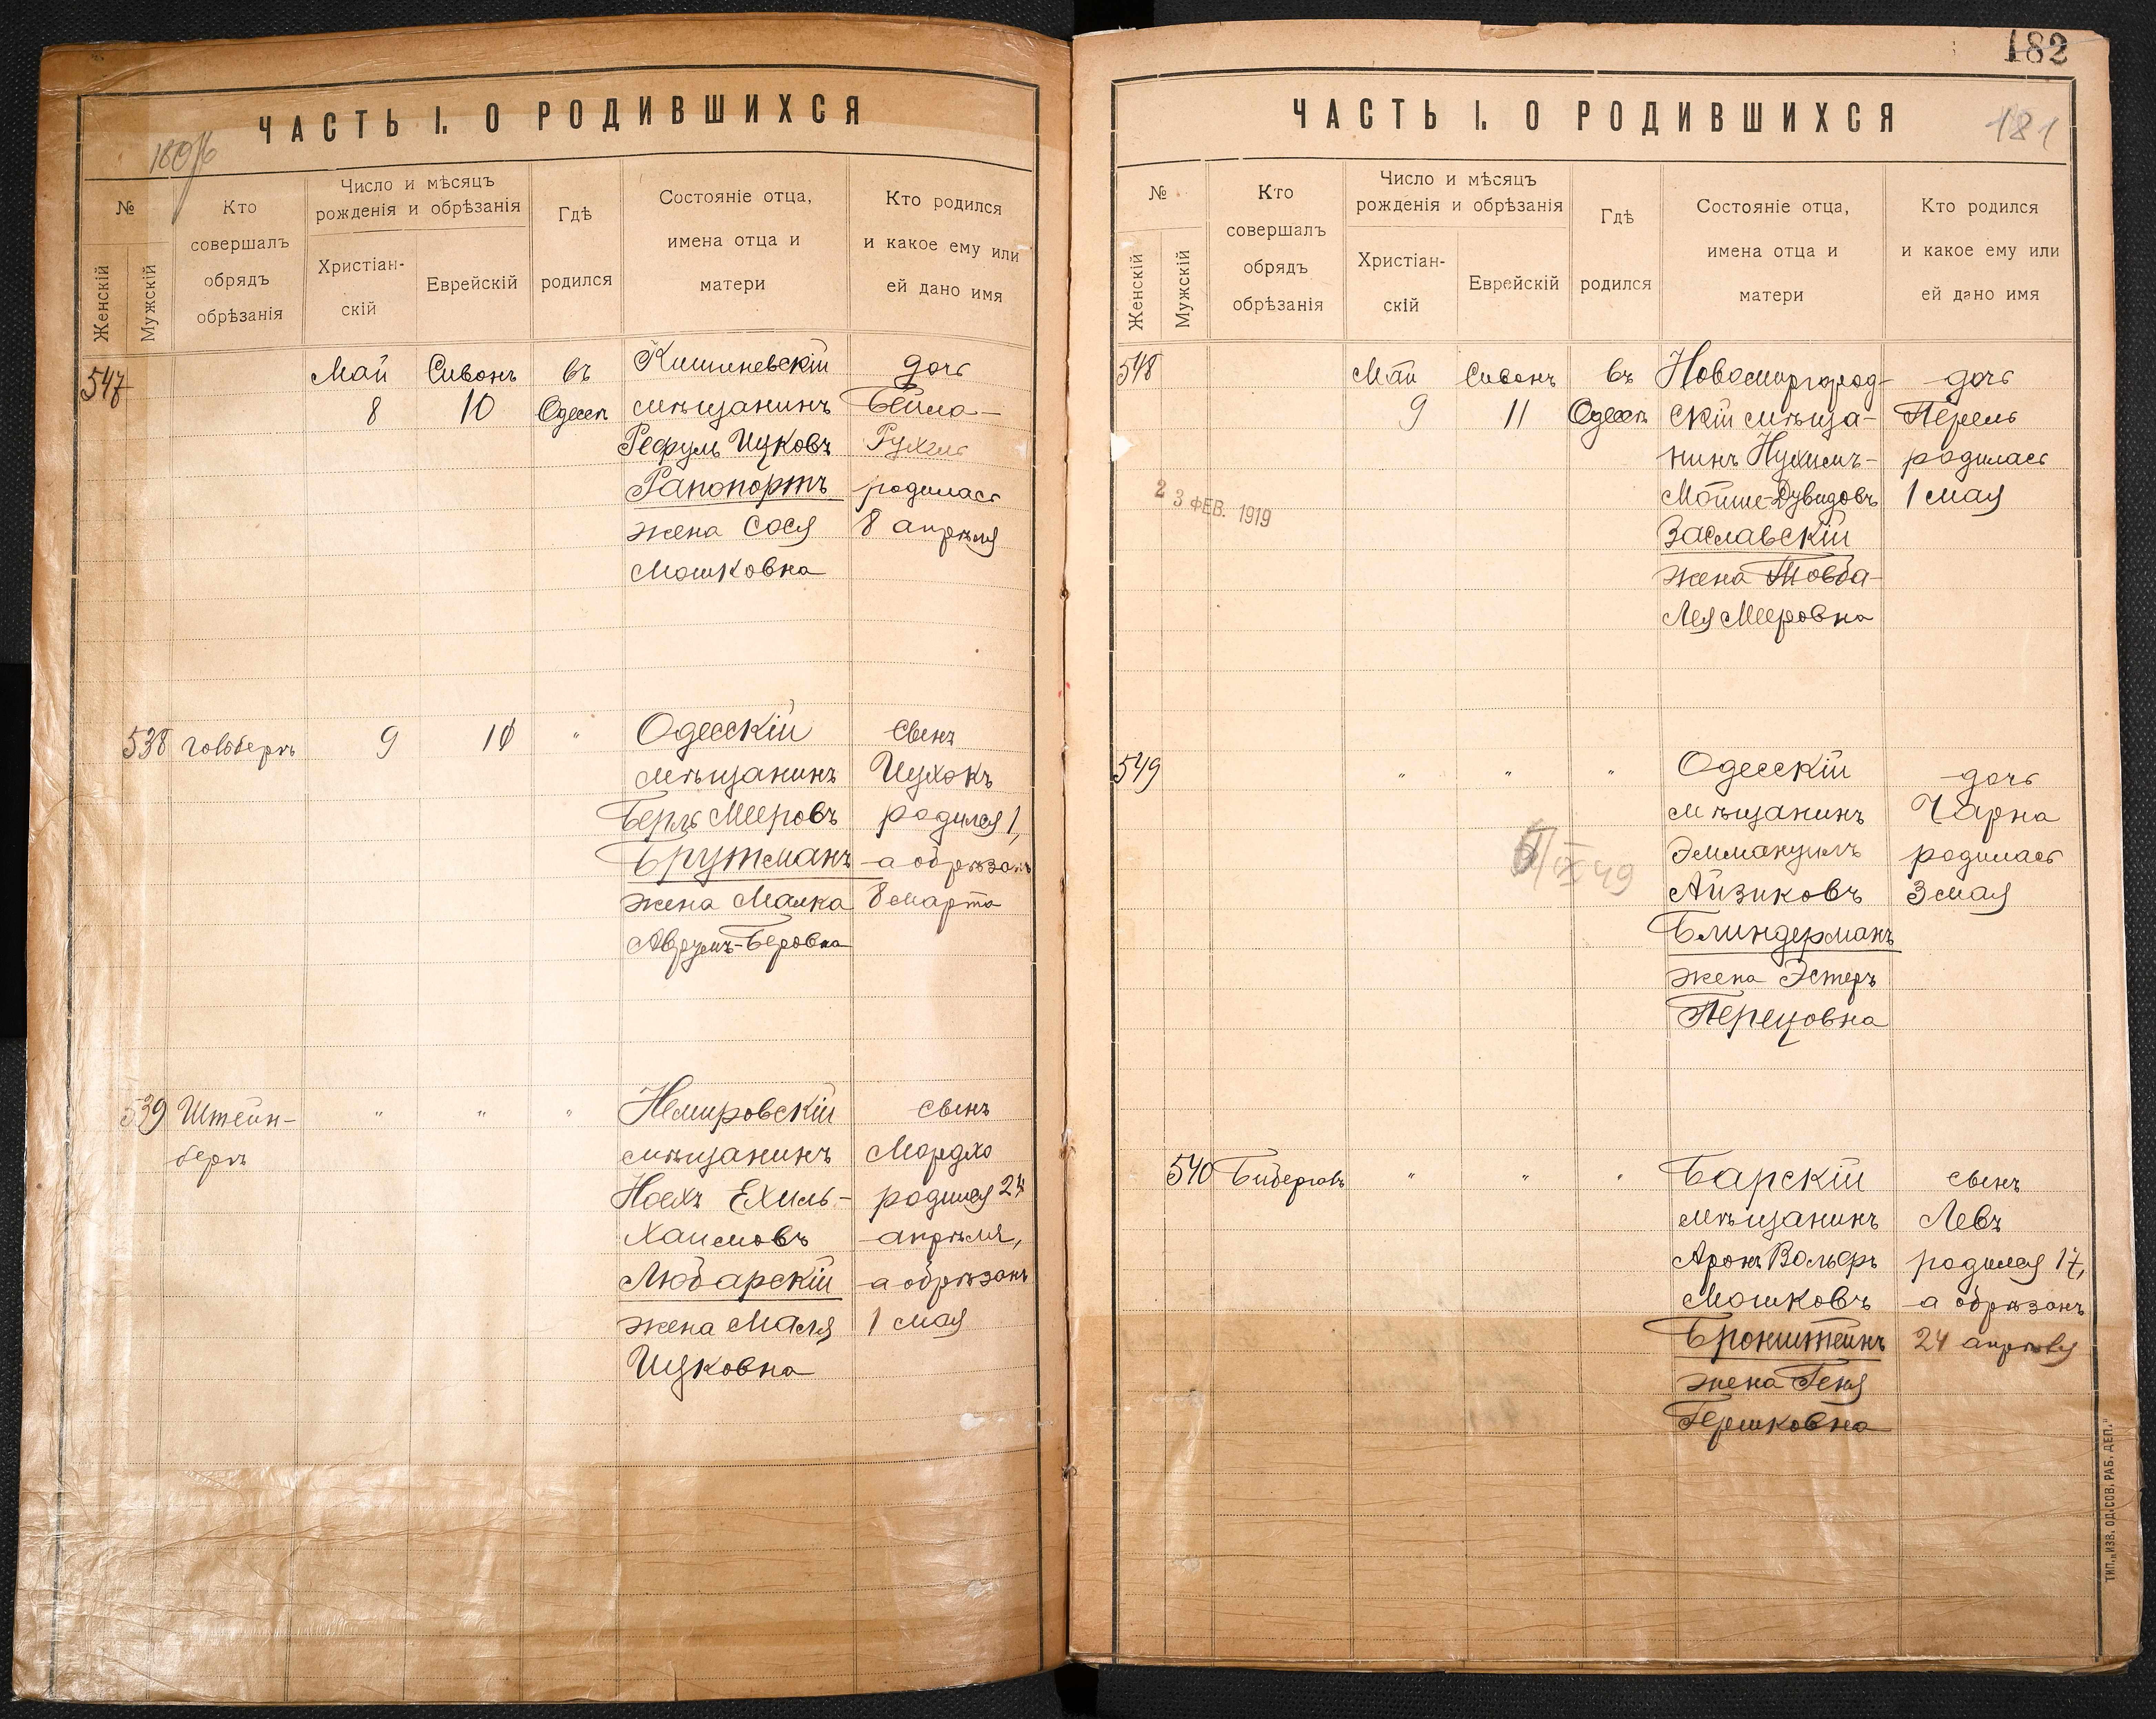 ЧАСТЬ I. О РОДИВШИХСЯ
№
Женскій
Мужскій
Кто
совершалъ
обрядъ
обрѣзанія
Число и мѣсяцъ
рожденія и обрѣзанія
Христіан-
скій
Еврейскій
Гдѣ
родился
Состояніе отца,
имена отца и
матери
Кто родился
и какое ему или
ей дано имя
547
Май
8
Сивонъ
10
въ
Одессѣ
Кишиневскій
мѣщанинъ
Рефулъ Ицковъ
Рапопортъ
жена Сося
Мошковна
дочь
Бейла-
Рухель
родилась
8 апрѣля
538
Гольбергъ
9
10
"
Одесскій
мѣщанинъ
Беръ Мееровъ
Брутманъ
жена Малка
Аврумъ-Беровна
сынъ
Ицхокъ
родился 1,
а обрѣзанъ
8 марта
539
Штейн-
бергъ
"
"
"
Немировскій
мѣщанинъ
Ноехъ Ехиль-
Хаимовъ
Любарскій
жена Маля
Ицковна
сынъ
Мордхо
родился 24
апрѣля,
а обрѣзанъ
1 мая
182
ЧАСТЬ I. О РОДИВШИХСЯ
181
№
Женскій
Мужскій
Кто
совершалъ
обрядъ
обрѣзанія
Число и мѣсяцъ
рожденія и обрѣзанія
Христіан-
скій
Еврейскій
Гдѣ
родился
Состояніе отца,
имена отца и
матери
Кто родился
и какое ему или
ей дано имя
548
2 3 ФЕВ. 1919
Май
9
Сивонъ
11
въ
Одессѣ
Новомиргород-
скій мѣща-
нинъ Нухимъ-
Мойше-Дувидовъ
Заславскій
жена Товба-
Лея Мееровна
дочь
Перель
родилась
1 мая
549
"
"
"
Одесскій
мѣщанинъ
Эммануилъ
Айзиковъ
Блиндерманъ
жена Эстеръ
Перецовна
дочь
Чарна
родилась
3 мая
540
"
"
"
Барскій
мѣщанинъ
Аронъ Вольфъ
Мошковъ
Бронштейнъ
жена Геня
Гершковна
сынъ
Левъ
родился 17,
а обрѣзанъ
24 апрѣля
ТИП. „ИЗВ. ОД. СОВ. РАБ. ДЕП."